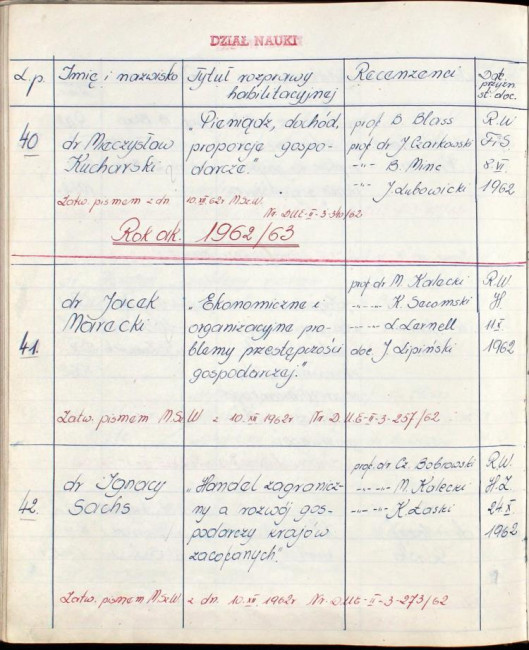 DZIAŁ NAUKI
L.p. Imię i nazwisko Tytuł rozprawy habilitacyjnej Recenzenci Dat. przyzn. st. doc.
40
dr Mieczysław
Kucharski
„Pieniądz, dochód,
proporcje gospo-
darcze."
prof. B. Blass
prof. dr J. Czarkowski
-"- B. Minc
-"- J. Lubowicki
R.W.
F.S.
8.VI.
1962
Zatw. pismem z dn. 10.XI.62r. M.Sz.W.
Rok ak. 1962/63
41.
dr Jacek
Marecki
„Ekonomiczne i
organizacyjne pro-
blemy przestępczości
gospodarczej."
prof. dr M. Kalecki
-"- -"- K. Secomski
-"- -"- L. Larnell
doc. J. Lipiński
R.W.
H.
11.X
1962
Zatw. pismem M.Sz.W z 10.XII.1962r Nr. D.U.E-II-3-257/62
42.
dr Ignacy
Sachs
„Handel zagranicz-
ny a rozwój gos-
podarczy krajów
zacofanych".
prof. dr Cz. Bobrowski
-"- -"- M. Kalecki
-"- K. Łaski
R.W.
H.Z.
24.X
1962
Zatw. pismem M.Sz.W z dn. 10.XII.1962r Nr. D.U.E-II-3-273/62